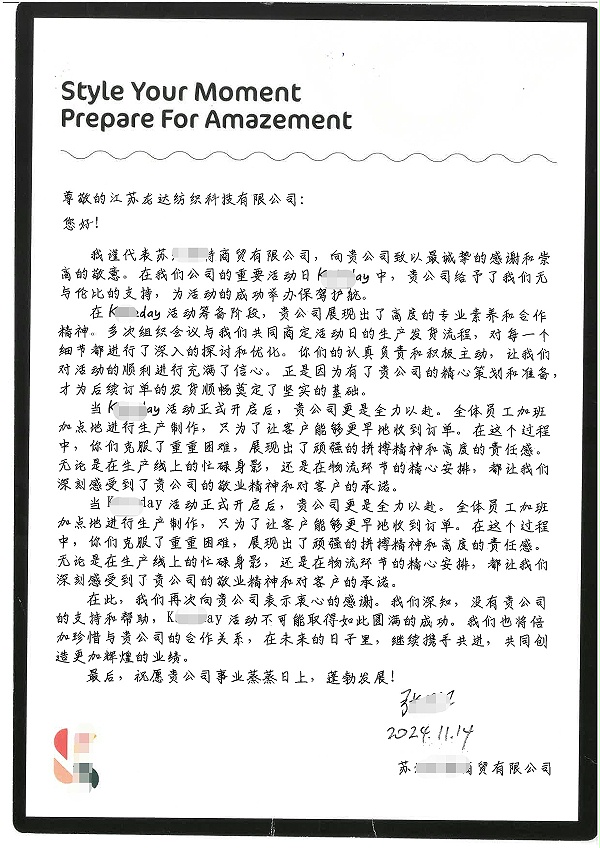 Style Your Moment
Prepare For Amazement
尊敬的江苏龙达纺织科技有限公司：
您好！
我谨代表苏 特商贸有限公司，向贵公司致以最诚挚的感谢和崇
高的敬意。在我们公司的重要活动日K day中，贵公司给予了我们无
与伦比的支持，为活动的成功举办保驾护航。
在 K day 活动筹备阶段，贵公司展现出了高度的专业素养和合作
精神。多次组织会议与我们共同商定活动日的生产发货流程，对每一个
细节都进行了深入的探讨和优化。你们的认真负责和积极主动，让我们
对活动的顺利进行充满了信心。正是因为有了贵公司的精心策划和准备，
才为后续订单的发货顺畅奠定了坚实的基础。
当 K day 活动正式开启后，贵公司更是全力以赴。全体员工加班
加点地进行生产制作，只为了让客户能够更早地收到订单。在这个过程
中，你们克服了重重困难，展现出了顽强的拼搏精神和高度的责任感。
无论是在生产线上的忙碌身影，还是在物流环节的精心安排，都让我们
深刻感受到了贵公司的敬业精神和对客户的承诺。
当 K day 活动正式开启后，贵公司更是全力以赴。全体员工加班
加点地进行生产制作，只为了让客户能够更早地收到订单。在这个过程
中，你们克服了重重困难，展现出了顽强的拼搏精神和高度的责任感。
无论是在生产线上的忙碌身影，还是在物流环节的精心安排，都让我们
深刻感受到了贵公司的敬业精神和对客户的承诺。
在此，我们再次向贵公司表示衷心的感谢。我们深知，没有贵公司
的支持和帮助，K ay 活动不可能取得如此圆满的成功。我们也将倍
加珍惜与贵公司的合作关系，在未来的日子里，继续携手共进，共同创
造更加辉煌的业绩。
最后，祝愿贵公司事业蒸蒸日上，蓬勃发展！
张
2024.11.14
苏 商贸有限公司